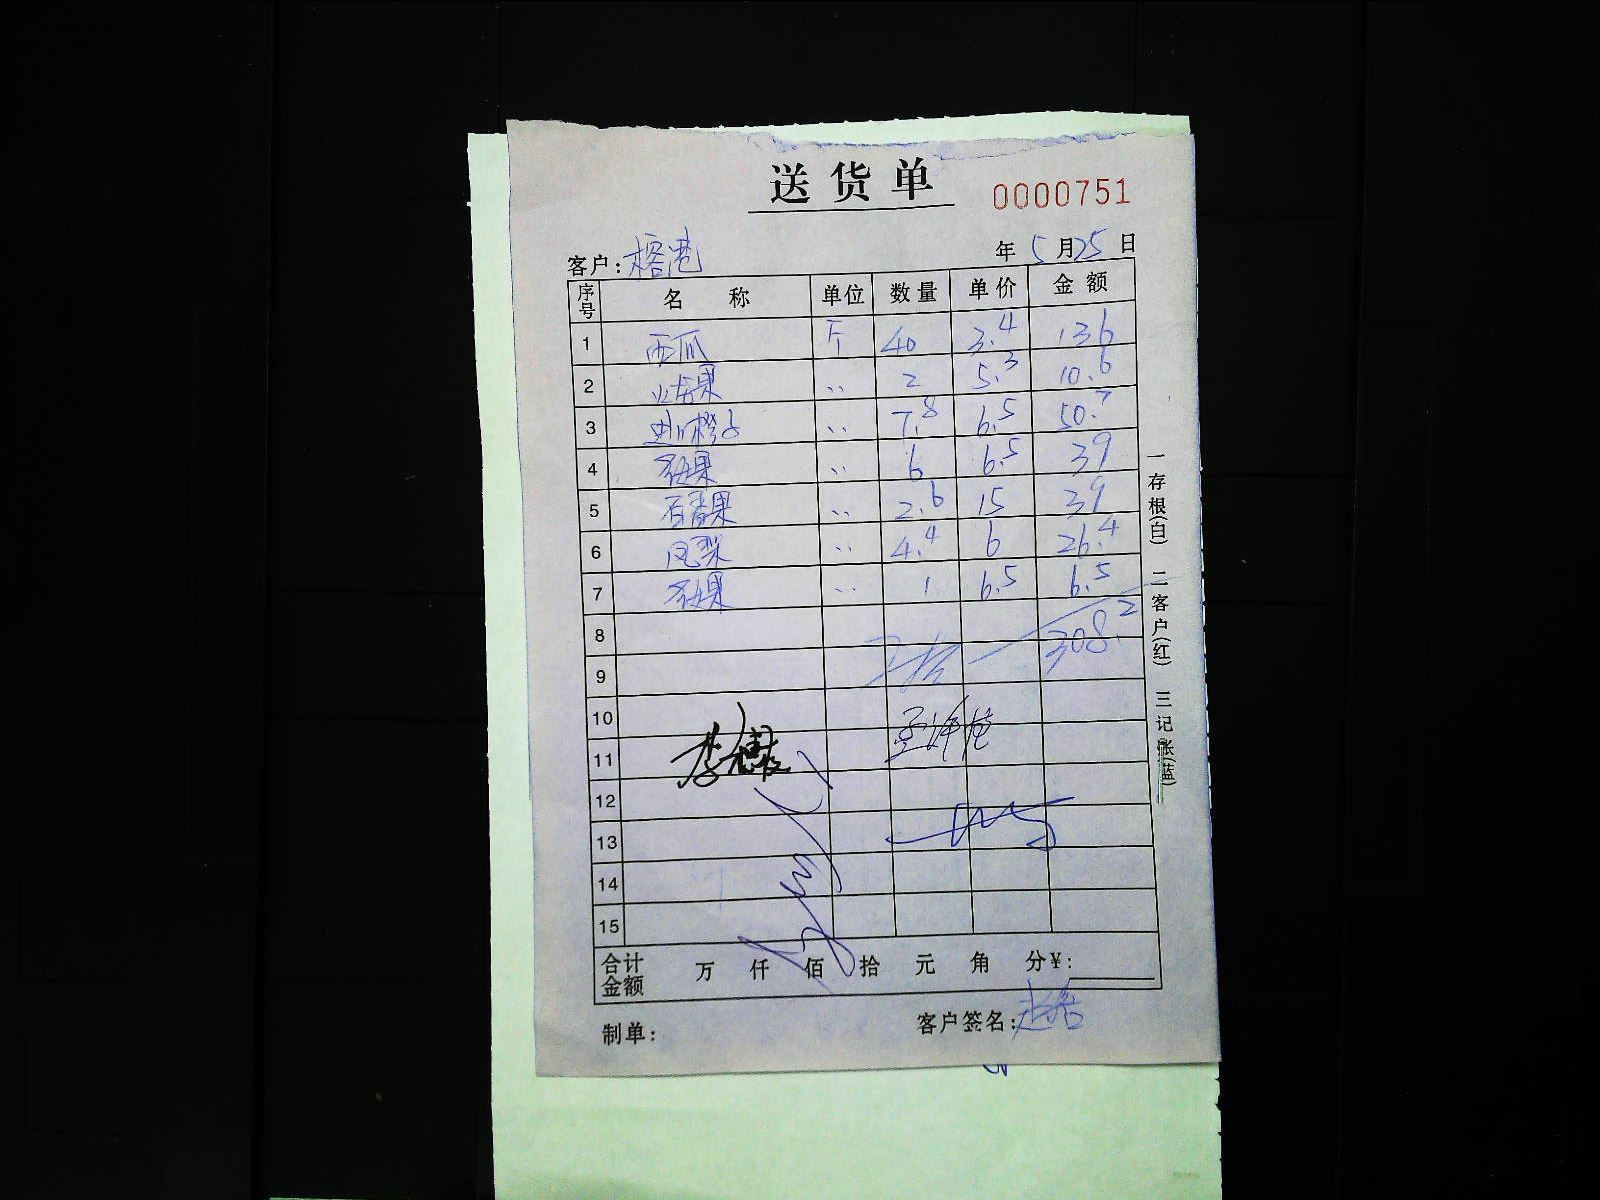 送货单 0000751
客户：榕港 年 5 月 25 日
序号 名 称 单位 数量 单价 金额
1 西瓜 斤 40 3.4 136
2 火龙果 〃 2 5.3 10.6
3 橙子 〃 7.8 6.5 50.7
4 果 〃 6 6.5 39
5 百香果 〃 2.6 15 39
6 凤梨 〃 4.4 6 26.4
7 果 〃 1 6.5 6.5
8
308.2
9
10
11
12
13
14
15
合计金额 万 仟 佰 拾 元 角 分 ¥:
制单： 客户签名：
一存根(白) 二客户(红) 三记账(蓝)